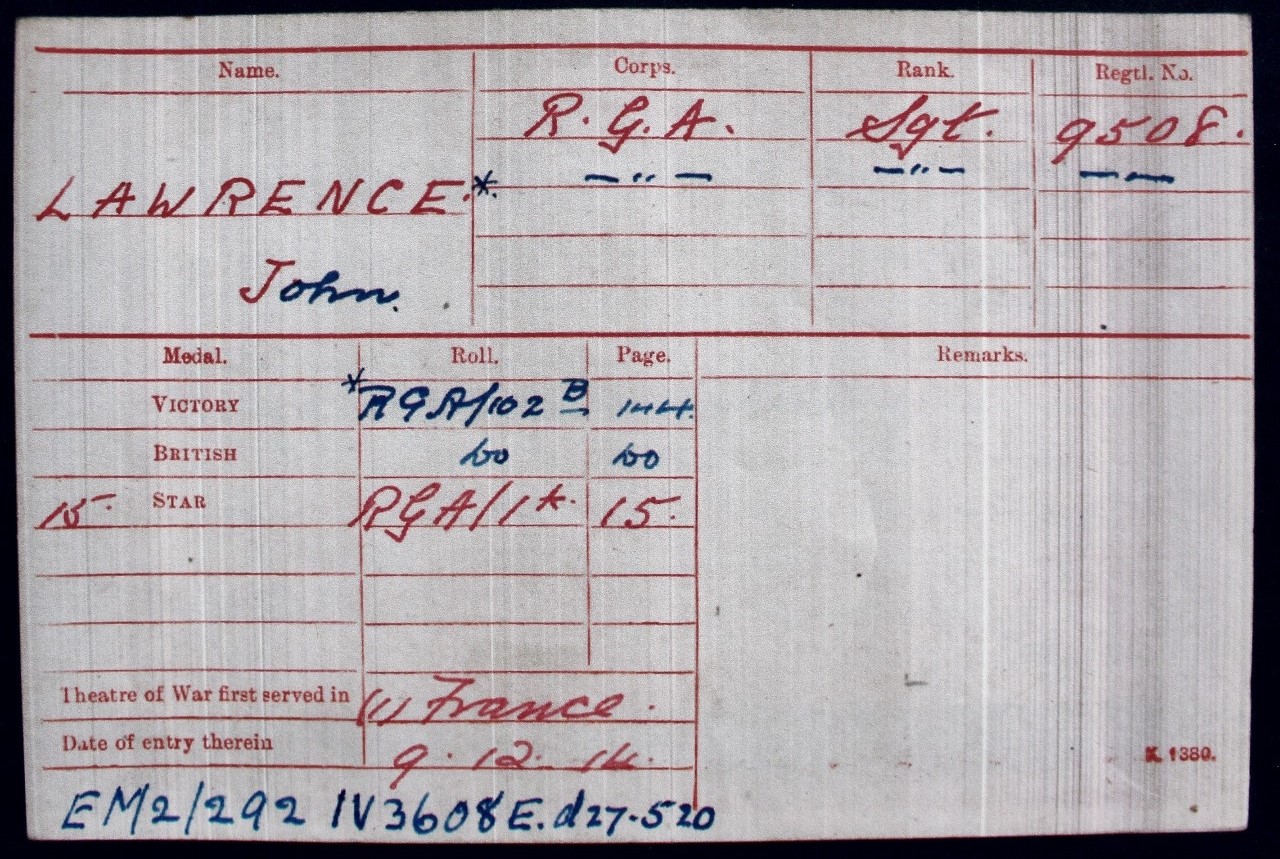 Name. Corps. Rank. Regtl. No.
R. G. A. Sgt. 9508.
LAWRENCE.*. —"— —"— — —
John.
Medal. Roll. Page. Remarks.
VICTORY *RGA/102 B 144.
BRITISH do do
15 STAR RGA/1k. 15.
Theatre of War first served in (1) France.
Date of entry therein 9.12.14.
K. 1380.
EM2/292 IV3608E.d27.520